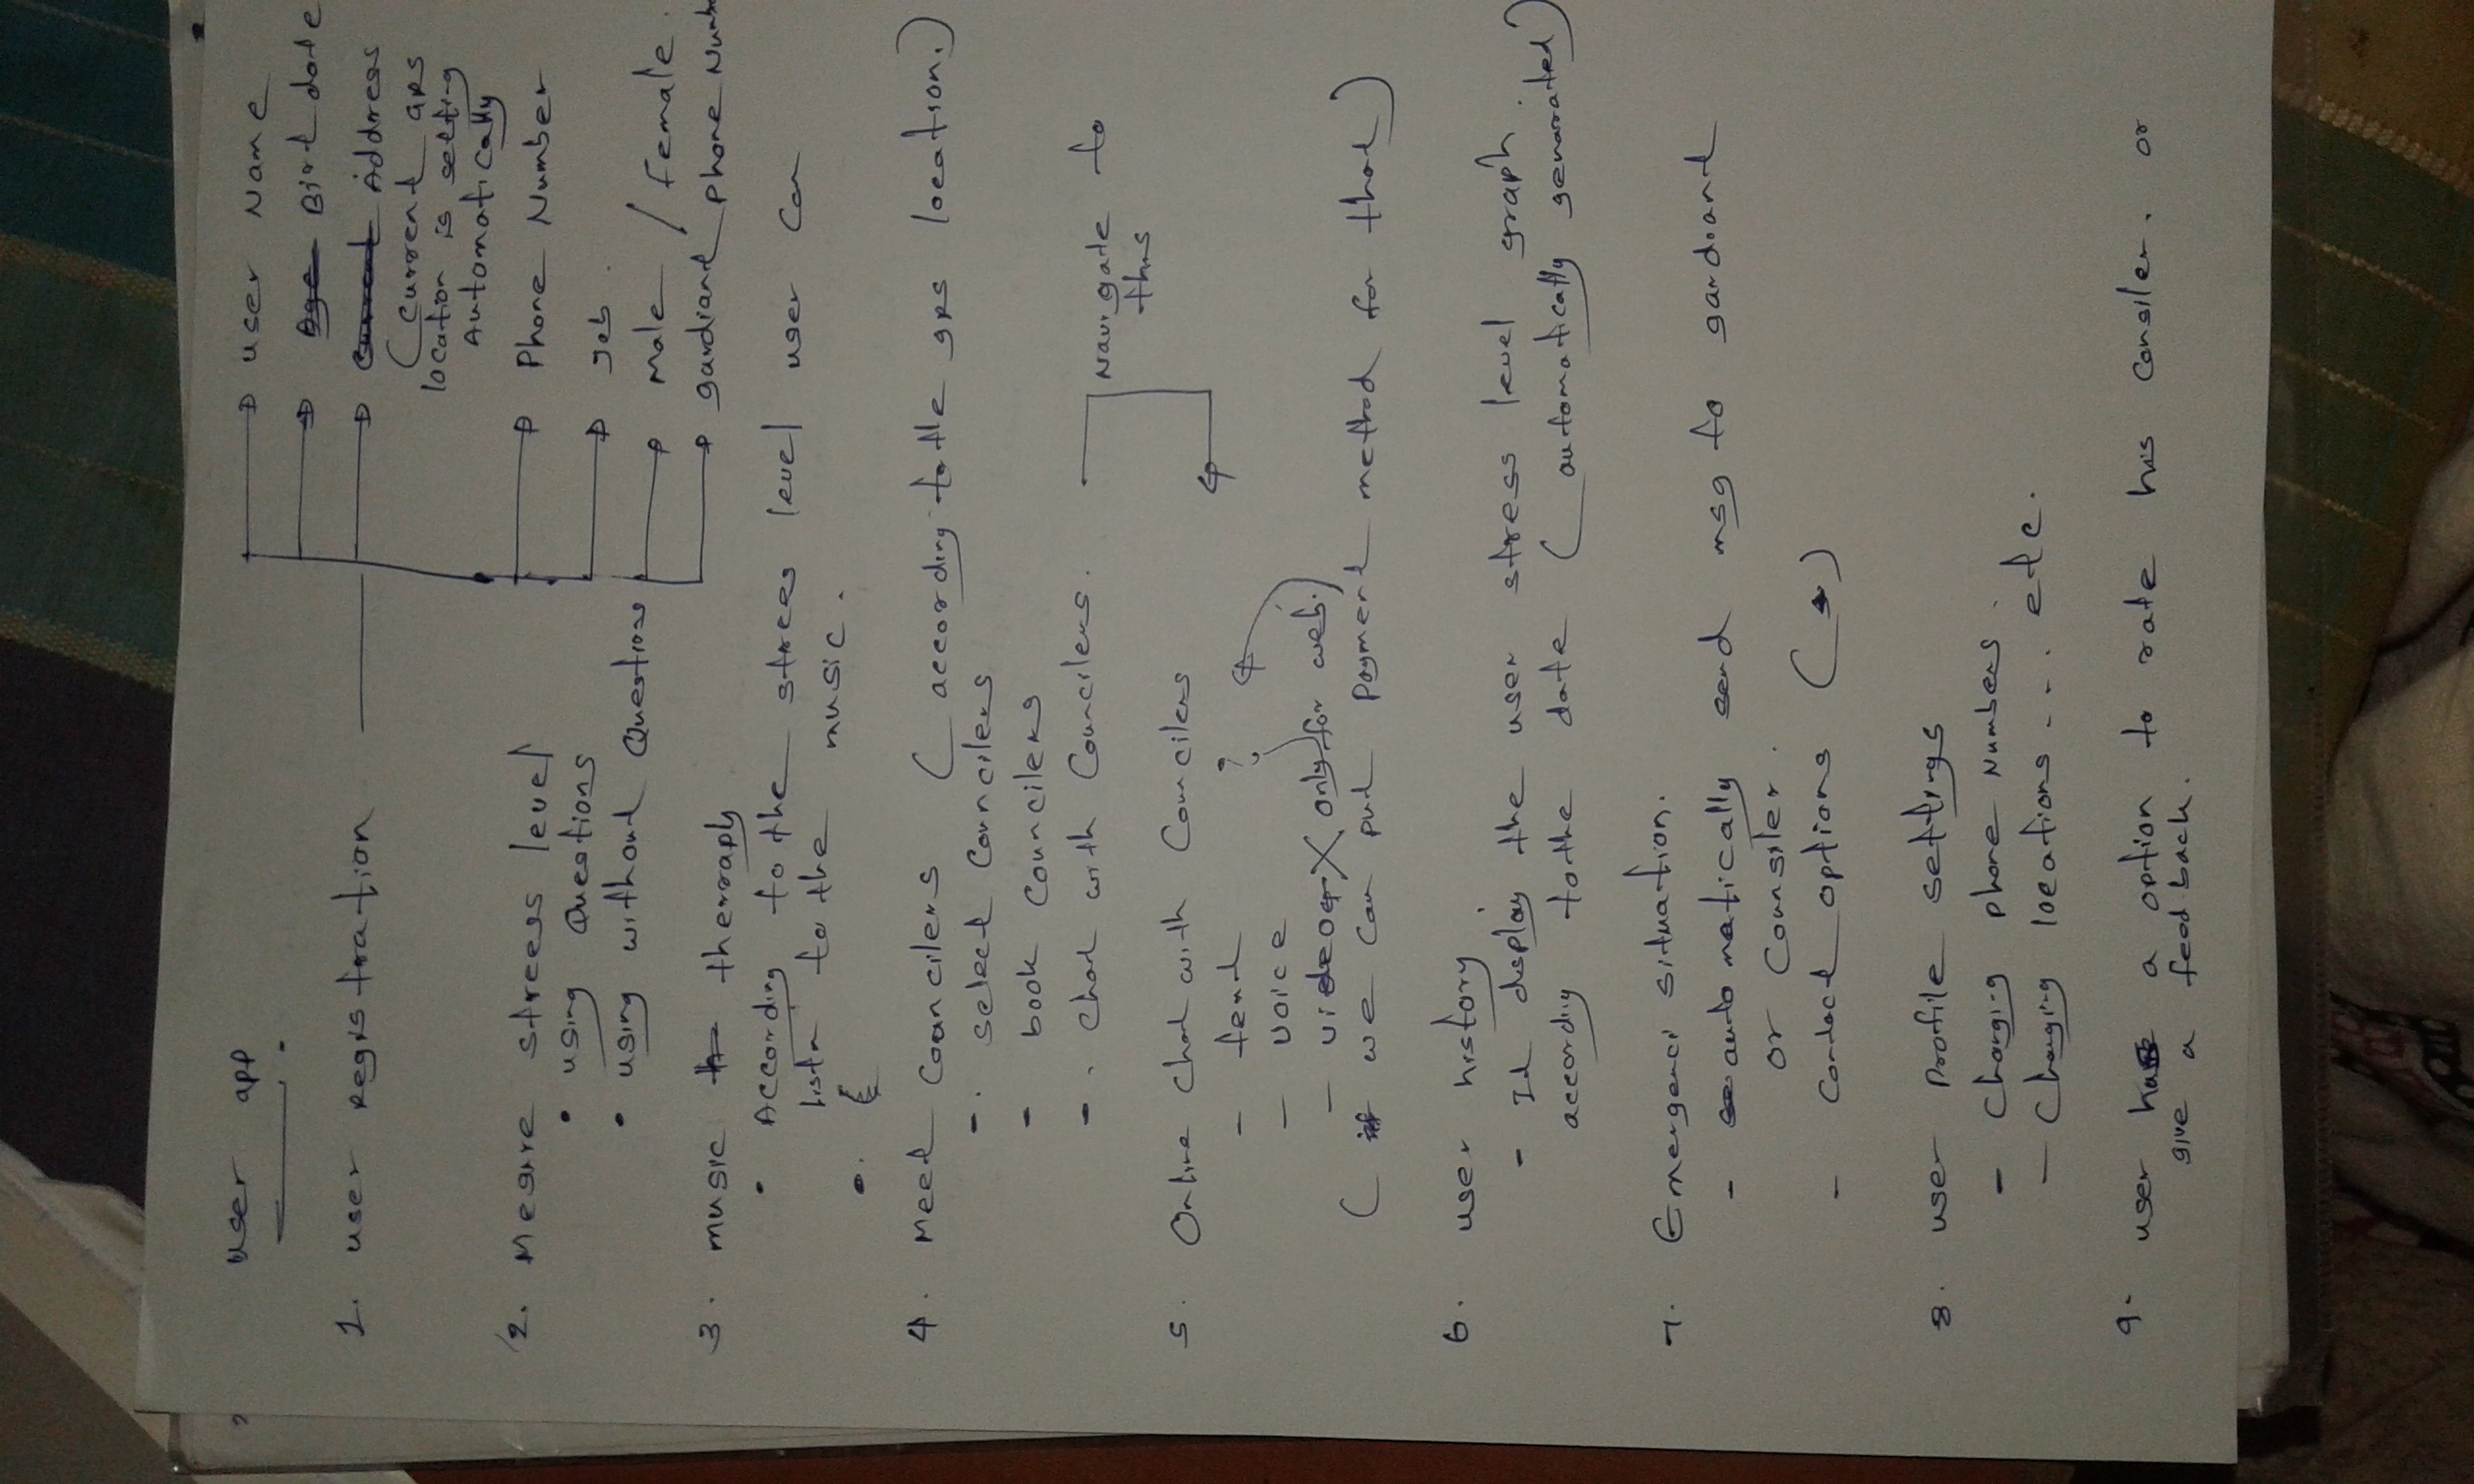 user app
1. user Registration
user Name
Birt date
Address
(current GPS
location is setting
Automatically
Phone Number
Job.
Male / Female.
gardiant phone Numbe
2. Mesire streess level
• using Questions
• using without Questions
3. music therraply
• According to the strees level user can
listn to the music.
•.
4. Meet Councilers (according to the gps location.)
-. select Councilers
- book Councilers
-. Chat with Councilers.
Navigate to
this
5. Online chat with Councilers
-
- voice
- video X only for web.)
?
( if we can put payment method for that)
6. user history.
- It display the user stress level graph.
according to the date (automatically genarated)
7. Emergenci situation.
- automatically send msg to gardiant
or Counsiler.
- Contact options ( )
8. user Profile settings
- Changing phone Numbers.
- Changing locations ... etc.
9. user has a option to rate his Consiler. or
give a feed back.